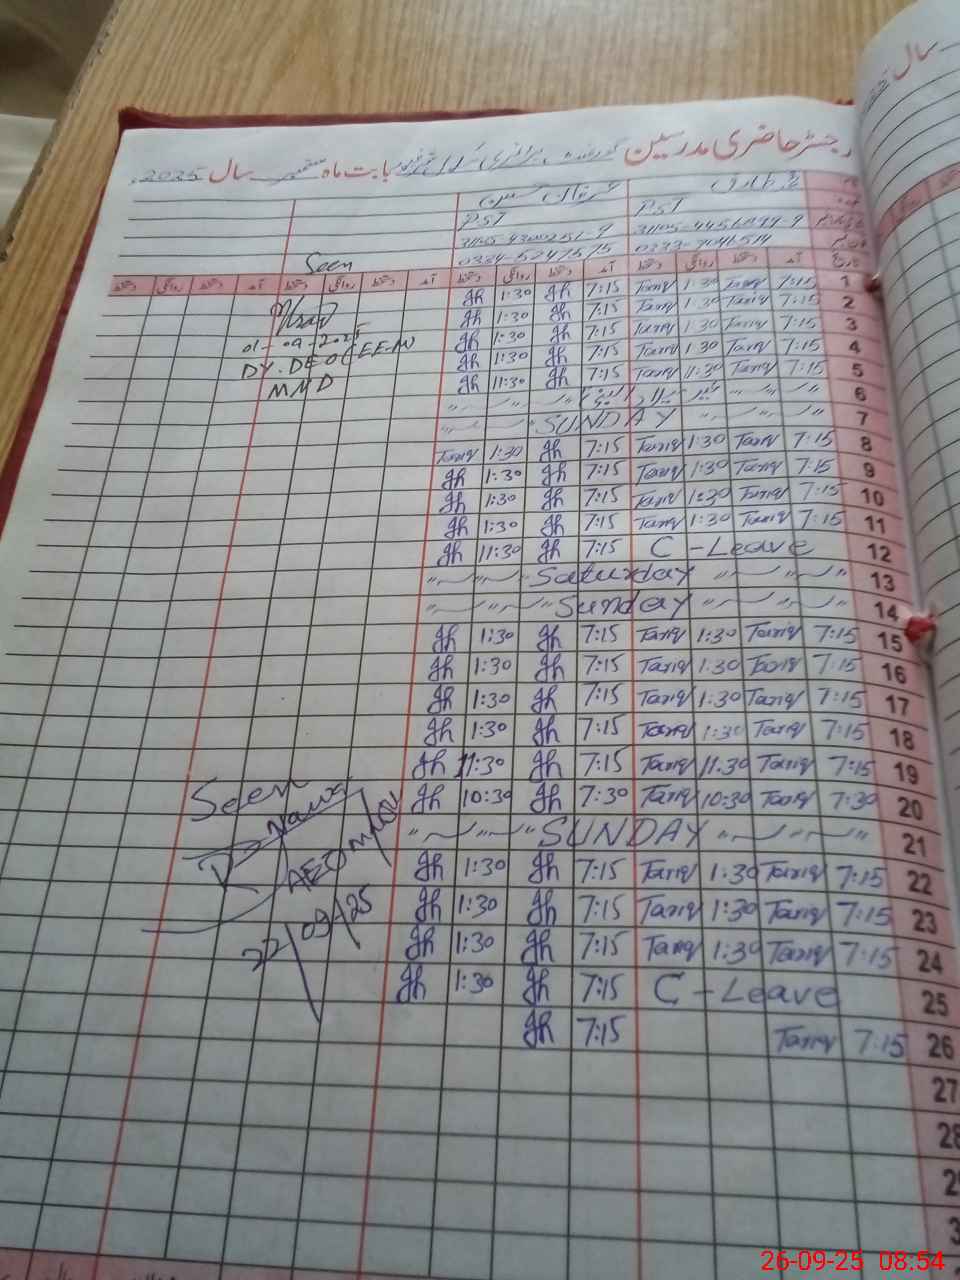 رجسٹر حاضری مدرسین گورنمنٹ بابت ماہ ستمبر سال 2025
سال
PST PST
0333-7041514
Seen
01-09-2025
DY. DEO (EE-M)
M.M.D
آمد دستخط روانگی دستخط آمد دستخط روانگی دستخط آمد دستخط روانگی دستخط آمد دستخط روانگی دستخط
Jh 1:30 Jh 7:15 Tariq 1:30 Tariq 7:15 1
Jh 1:30 Jh 7:15 Tariq 1:30 Tariq 7:15 2
Jh 1:30 Jh 7:15 Tariq 1:30 Tariq 7:15 3
Jh 1:30 Jh 7:15 Tariq 1:30 Tariq 7:15 4
Jh 11:30 Jh 7:15 Tariq 11:30 Tariq 7:15 5
6
SUNDAY 7
Tariq 1:30 Jh 7:15 Tariq 1:30 Tariq 7:15 8
Jh 1:30 Jh 7:15 Tariq 1:30 Tariq 7:15 9
Jh 1:30 Jh 7:15 Tariq 1:30 Tariq 7:15 10
Jh 1:30 Jh 7:15 Tariq 1:30 Tariq 7:15 11
Jh 11:30 Jh 7:15 C-Leave 12
Saturday 13
Sunday 14
Jh 1:30 Jh 7:15 Tariq 1:30 Tariq 7:15 15
Jh 1:30 Jh 7:15 Tariq 1:30 Tariq 7:15 16
Jh 1:30 Jh 7:15 Tariq 1:30 Tariq 7:15 17
Jh 1:30 Jh 7:15 Tariq 1:30 Tariq 7:15 18
Jh 11:30 Jh 7:15 Tariq 11:30 Tariq 7:15 19
Jh 10:30 Jh 7:30 Tariq 10:30 Tariq 7:30 20
SUNDAY 21
Jh 1:30 Jh 7:15 Tariq 1:30 Tariq 7:15 22
Jh 1:30 Jh 7:15 Tariq 1:30 Tariq 7:15 23
Jh 1:30 Jh 7:15 Tariq 1:30 Tariq 7:15 24
Jh 1:30 Jh 7:15 C-Leave 25
Jh 7:15 Tariq 7:15 26
27
28
Seen
AEO
22/09/25
26-09-25 08:54